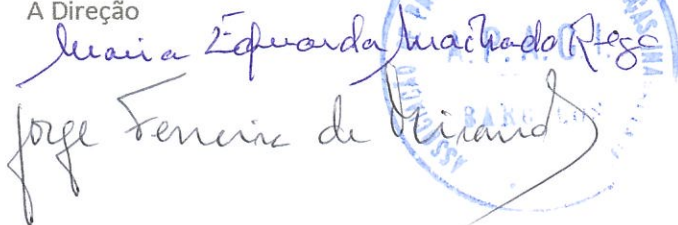 A Direção
Maria Eduarda Machado Rego
Jorge Ferreira de Miranda